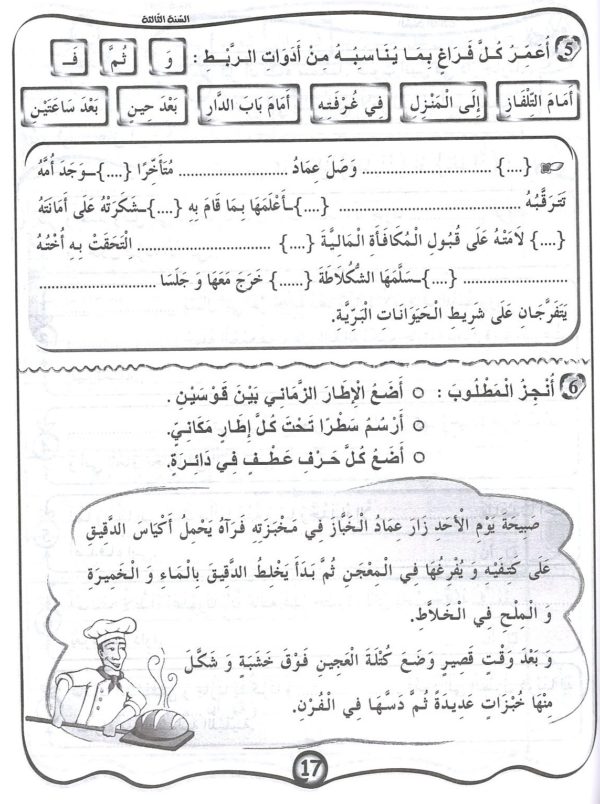 السّنة الثّالثة
5 أُعَمِّرُ كُلَّ فَرَاغٍ بِمَا يُنَاسِبُهُ مِنْ أَدَوَاتِ الـرَّبْـطِ : وَ ثُمَّ فَـ
أَمَامَ التِّلْفَازِ إِلَى الْمَنْزِلِ فِي غُرْفَتِهِ أَمَامَ بَابَ الدَّارِ بَعْدَ حِينٍ بَعْدَ سَاعَتَيْنِ
{....} .......................... وَصَلَ عِمَادُ ...................... مُتَأَخِّرًا {....}ـوَجَدَ أُمَّهُ
تَتَرَقَّبُهُ .............................. {....}ـأَعْلَمَهَا بِمَا قَامَ بِهِ {....}ـشَكَرَتْهُ عَلَى أَمَانَتَهُ
{....} لَامَتْهُ عَلَى قُبُولِ الْمُكَافَأَةِ الْمَالِيَّةِ {....} .......................... اِلْتَحَقَتْ بِهِ أُخْتُهُ
...................... {....}ـسَلَّمَهَا الشُّكُلَاطَةَ {.....} خَرَجَ مَعَهَا وَ جَلَسَا ......................
يَتَفَرَّجَانِ عَلَى شَرِيطِ الْحَيَوَانَاتِ الْبَرِّيَّةِ.
6 أُنْجِزُ الْمَطْلُوبَ : ○ أَضَعُ الْإِطَارَ الزَّمَانِي بَيْنَ قَوْسَيْنِ .
○ أَرْسُمُ سَطْرًا تَحْتَ كُلَّ إِطَارٍ مَكَانِيٍّ.
○ أَضَعُ كُلَّ حَرْفِ عَطْفٍ فِي دَائِرَةٍ.
صَبِيحَةَ يَوْمِ الْأَحَدِ زَارَ عِمَادُ الْخَبَّازَ فِي مَخْبَزَتِهِ فَرَآهُ يَحْمِلُ أَكْيَاسَ الدَّقِيقِ
عَلَى كَتِفَيْهِ وَ يُفْرِغُهَا فِي الْمَعْجَنِ ثُمَّ بَدَأَ يَخْلِطُ الدَّقِيقَ بِالْمَاءِ وَ الْخَمِيرَةِ
وَ الْمِلْحِ فِي الْخَلَّاطِ.
وَ بَعْدَ وَقْتٍ قَصِيرٍ وَضَعَ كُتْلَةَ الْعَجِينِ فَوْقَ خَشَبَةٍ وَ شَكَّلَ
مِنْهَا خُبْزَاتٍ عَدِيدَةً ثُمَّ دَسَّهَا فِي الْفُرْنِ.
17